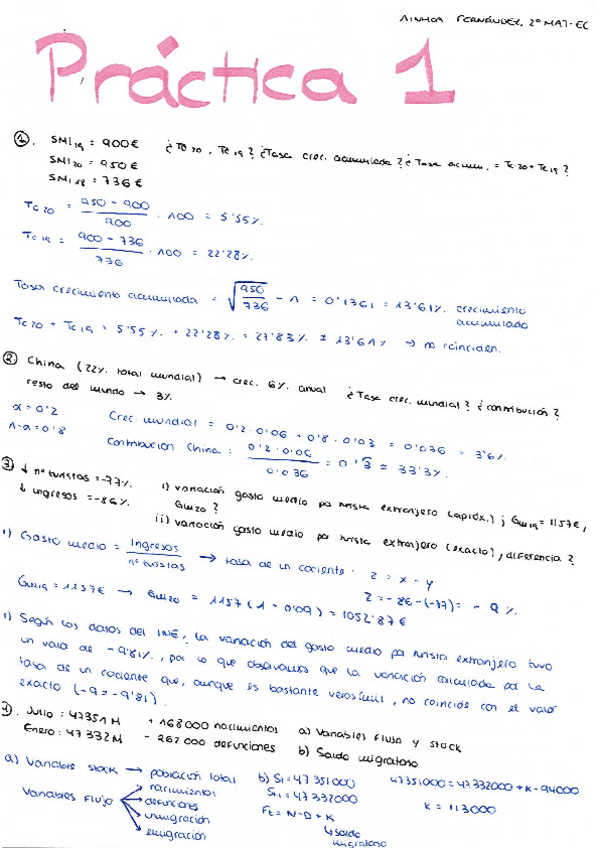 AINHOA FERNÁNDEZ, 2º MAT-EC
Práctica 1
①. SMI19 = 900€ ¿TC20, TC19? ¿Tasa crec. acumulada? ¿Tasa acum. = TC20 + TC19?
SMI20 = 950€
SMI18 = 736€
TC20 = (950 - 900)/900 · 100 = 5'55%.
TC19 = (900 - 736)/736 · 100 = 22'28%.
Tasa crecimiento acumulada = √(950/736) - 1 = 0'1361 = 13'61%. crecimiento acumulado
TC20 + TC19 = 5'55% + 22'28% = 27'83% ≠ 13'61% → no coinciden.
② China (22% total mundial) → crec. 6% anual ¿Tasa crec. mundial? ¿contribución?
resto del mundo → 3%
α = 0'2 Crec. mundial = 0'2 · 0'06 + 0'8 · 0'03 = 0'036 = 3'6%
1-α = 0'8 Contribución China = (0'2 · 0'06)/0'036 = 0'3̂ = 33'3%.
③ ↓ nº turistas = -77% i) variación gasto medio por turista extranjero (apróx.) ; GM19 = 1157€,
↓ ingresos = -86% GM20?
ii) variación gasto medio por turista extranjero (exacto), diferencia?
i) Gasto medio = Ingresos/nº turistas → tasa de un cociente: z = x - y
z = -86 - (-77) = -9%.
GM19 = 1157€ → GM20 = 1157 (1 - 0'09) = 1052'87€
i) Según los datos del INE, la variación del gasto medio por turista extranjero tuvo
un valor de -9'81%, por lo que observamos que la variación calculada por la
tasa de un cociente que, aunque es bastante verosímil, no coincide con el valor
exacto (-9 ≈ -9'81).
4). Julio: 47351 M + 168000 nacimientos a) Variables flujo y stock
Enero: 47332M - 262000 defunciones b) Saldo migratorio
a) Variable stock → población total b) St = 47351000 47351000 = 47332000 + K - 94000
Variables flujo → nacimientos St-1 = 47332000 K = 113000
defunciones Ft = N - D + K
inmigración ↳ saldo
emigración migratorio